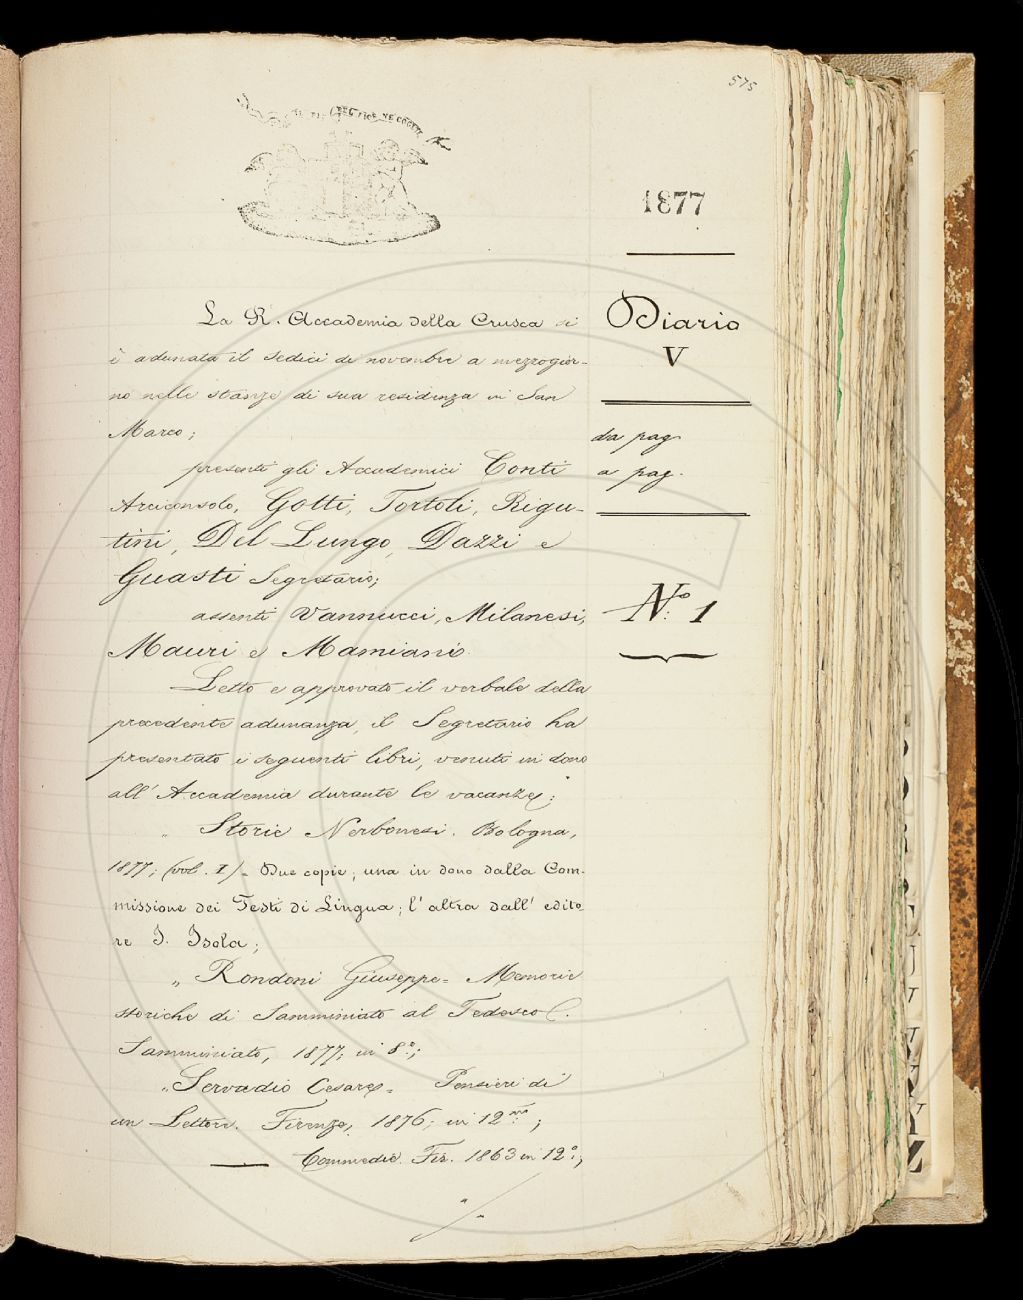 575
1877
Diario
V
da pag.
a pag.
N.º 1
La R. Accademia della Crusca si
è adunata il sedici di novembre a mezzogior-
no nelle stanze di sua residenza in San
Marco;
presenti gli Accademici Conti
Arciconsolo, Gotti, Tortoli, Rigu-
tini, Del Lungo, Dazzi e
Guasti Segretario;
assenti Vannucci, Milanesi,
Mauri e Mamiani.
Letto e approvato il verbale della
precedente adunanza, il Segretario ha
presentato i seguenti libri, venuti in dono
all'Accademia durante le vacanze:
„ Storie Nerbonesi. Bologna,
1877; (vol. I) - Due copie; una in dono dalla Com-
missione dei Testi di Lingua; l'altra dall'edito-
re I. Isola;
„ Rondoni Giuseppe = Memorie
storiche di Samminiato al Tedesco.
Samminiato, 1877; in 8º;
„ Servadio Cesare = Pensieri di
un Lettore. Firenze, 1876; in 12mo;
— Commedie. Fir. 1863 in 12º;